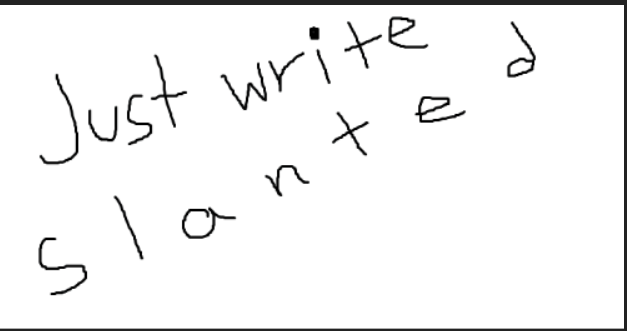 Just write
slanted